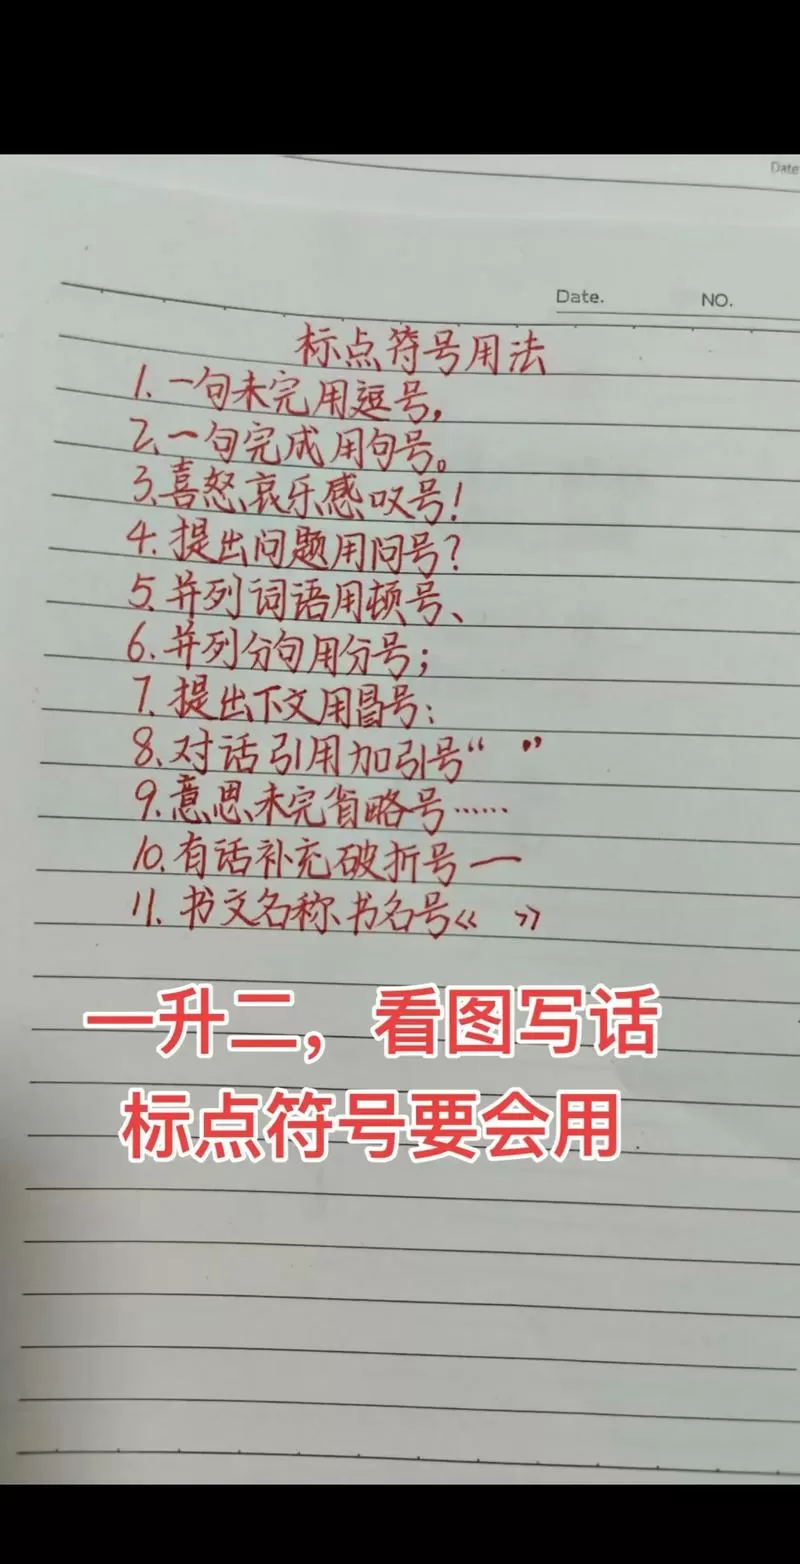 Date
Date.
NO.
标点符号用法
1. 一句未完用逗号，
2. 一句完成用句号。
3. 喜怒哀乐感叹号！
4. 提出问题用问号？
5. 并列词语用顿号、
6. 并列分句用分号；
7. 提出下文用冒号：
8. 对话引用加引号“ ”
9. 意思未完省略号……
10. 有话补充破折号—
11. 书文名称书名号《 》
一升二，看图写话
标点符号要会用